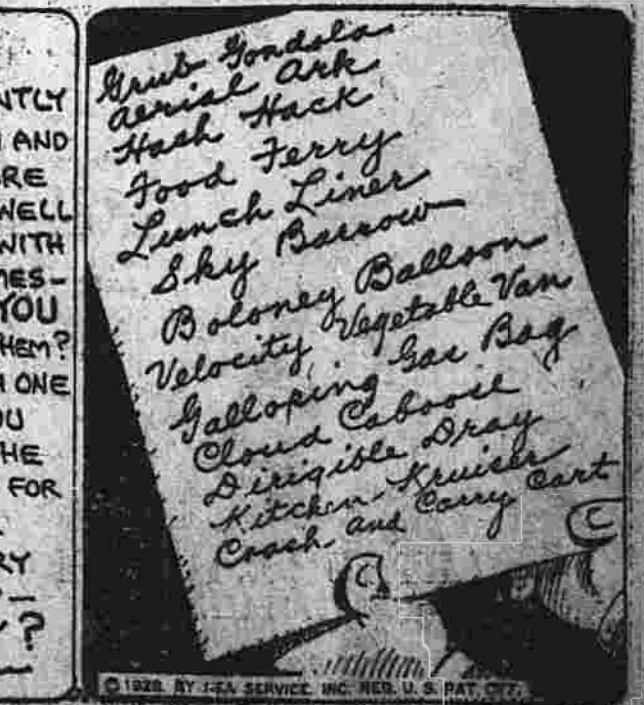 NTLY
AND
RE
WELL
WITH
MES-
YOU
HEM?
ONE
OU
HE
FOR
RY
?
Grub Gondola
Aerial Ark
Hash Hack
Food Ferry
Lunch Liner
Sky Barrow
Boloney Balloon
Velocity Vegetable Van
Galloping Gas Bag
Cloud Caboose
Dirigible Dray
Kitchen Kruiser
Crash and Carry Cart
© 1928, BY NEA SERVICE, INC. REG. U. S. PAT. OFF.